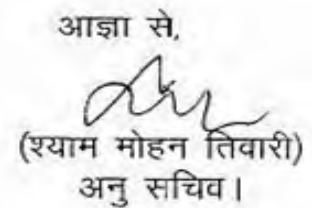 आज्ञा से,
(श्याम मोहन तिवारी)
अनु सचिव।